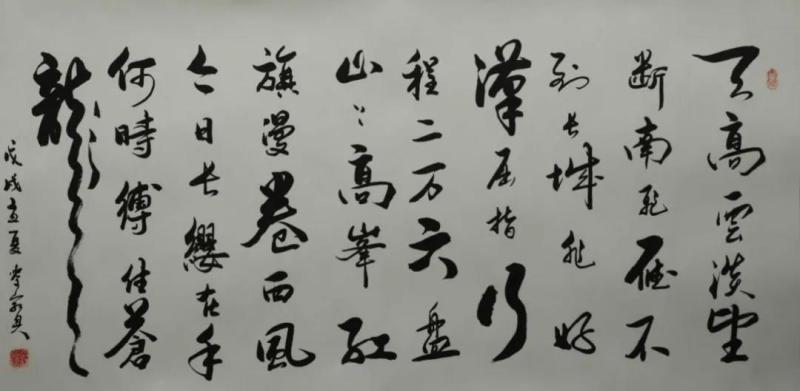 天高雲淡望
斷南飛雁不
到長城非好
漢屈指行
程二万六盤
山上高峯紅
旗漫卷西風
今日長纓在手
何時縛住蒼
龍
戊戌夏